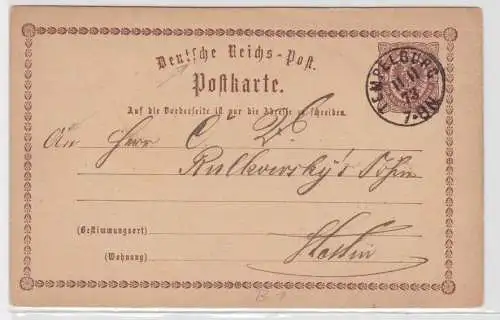 Deutsche Reichs-Post.
Postkarte.
Auf die Vorderseite ist nur die Adresse zu schreiben.
TEMPELBURG
11 11
73
7-8N
An Herrn C
Rulkowsky's Sohn
(Bestimmungsort)
Stettin
(Wohnung)